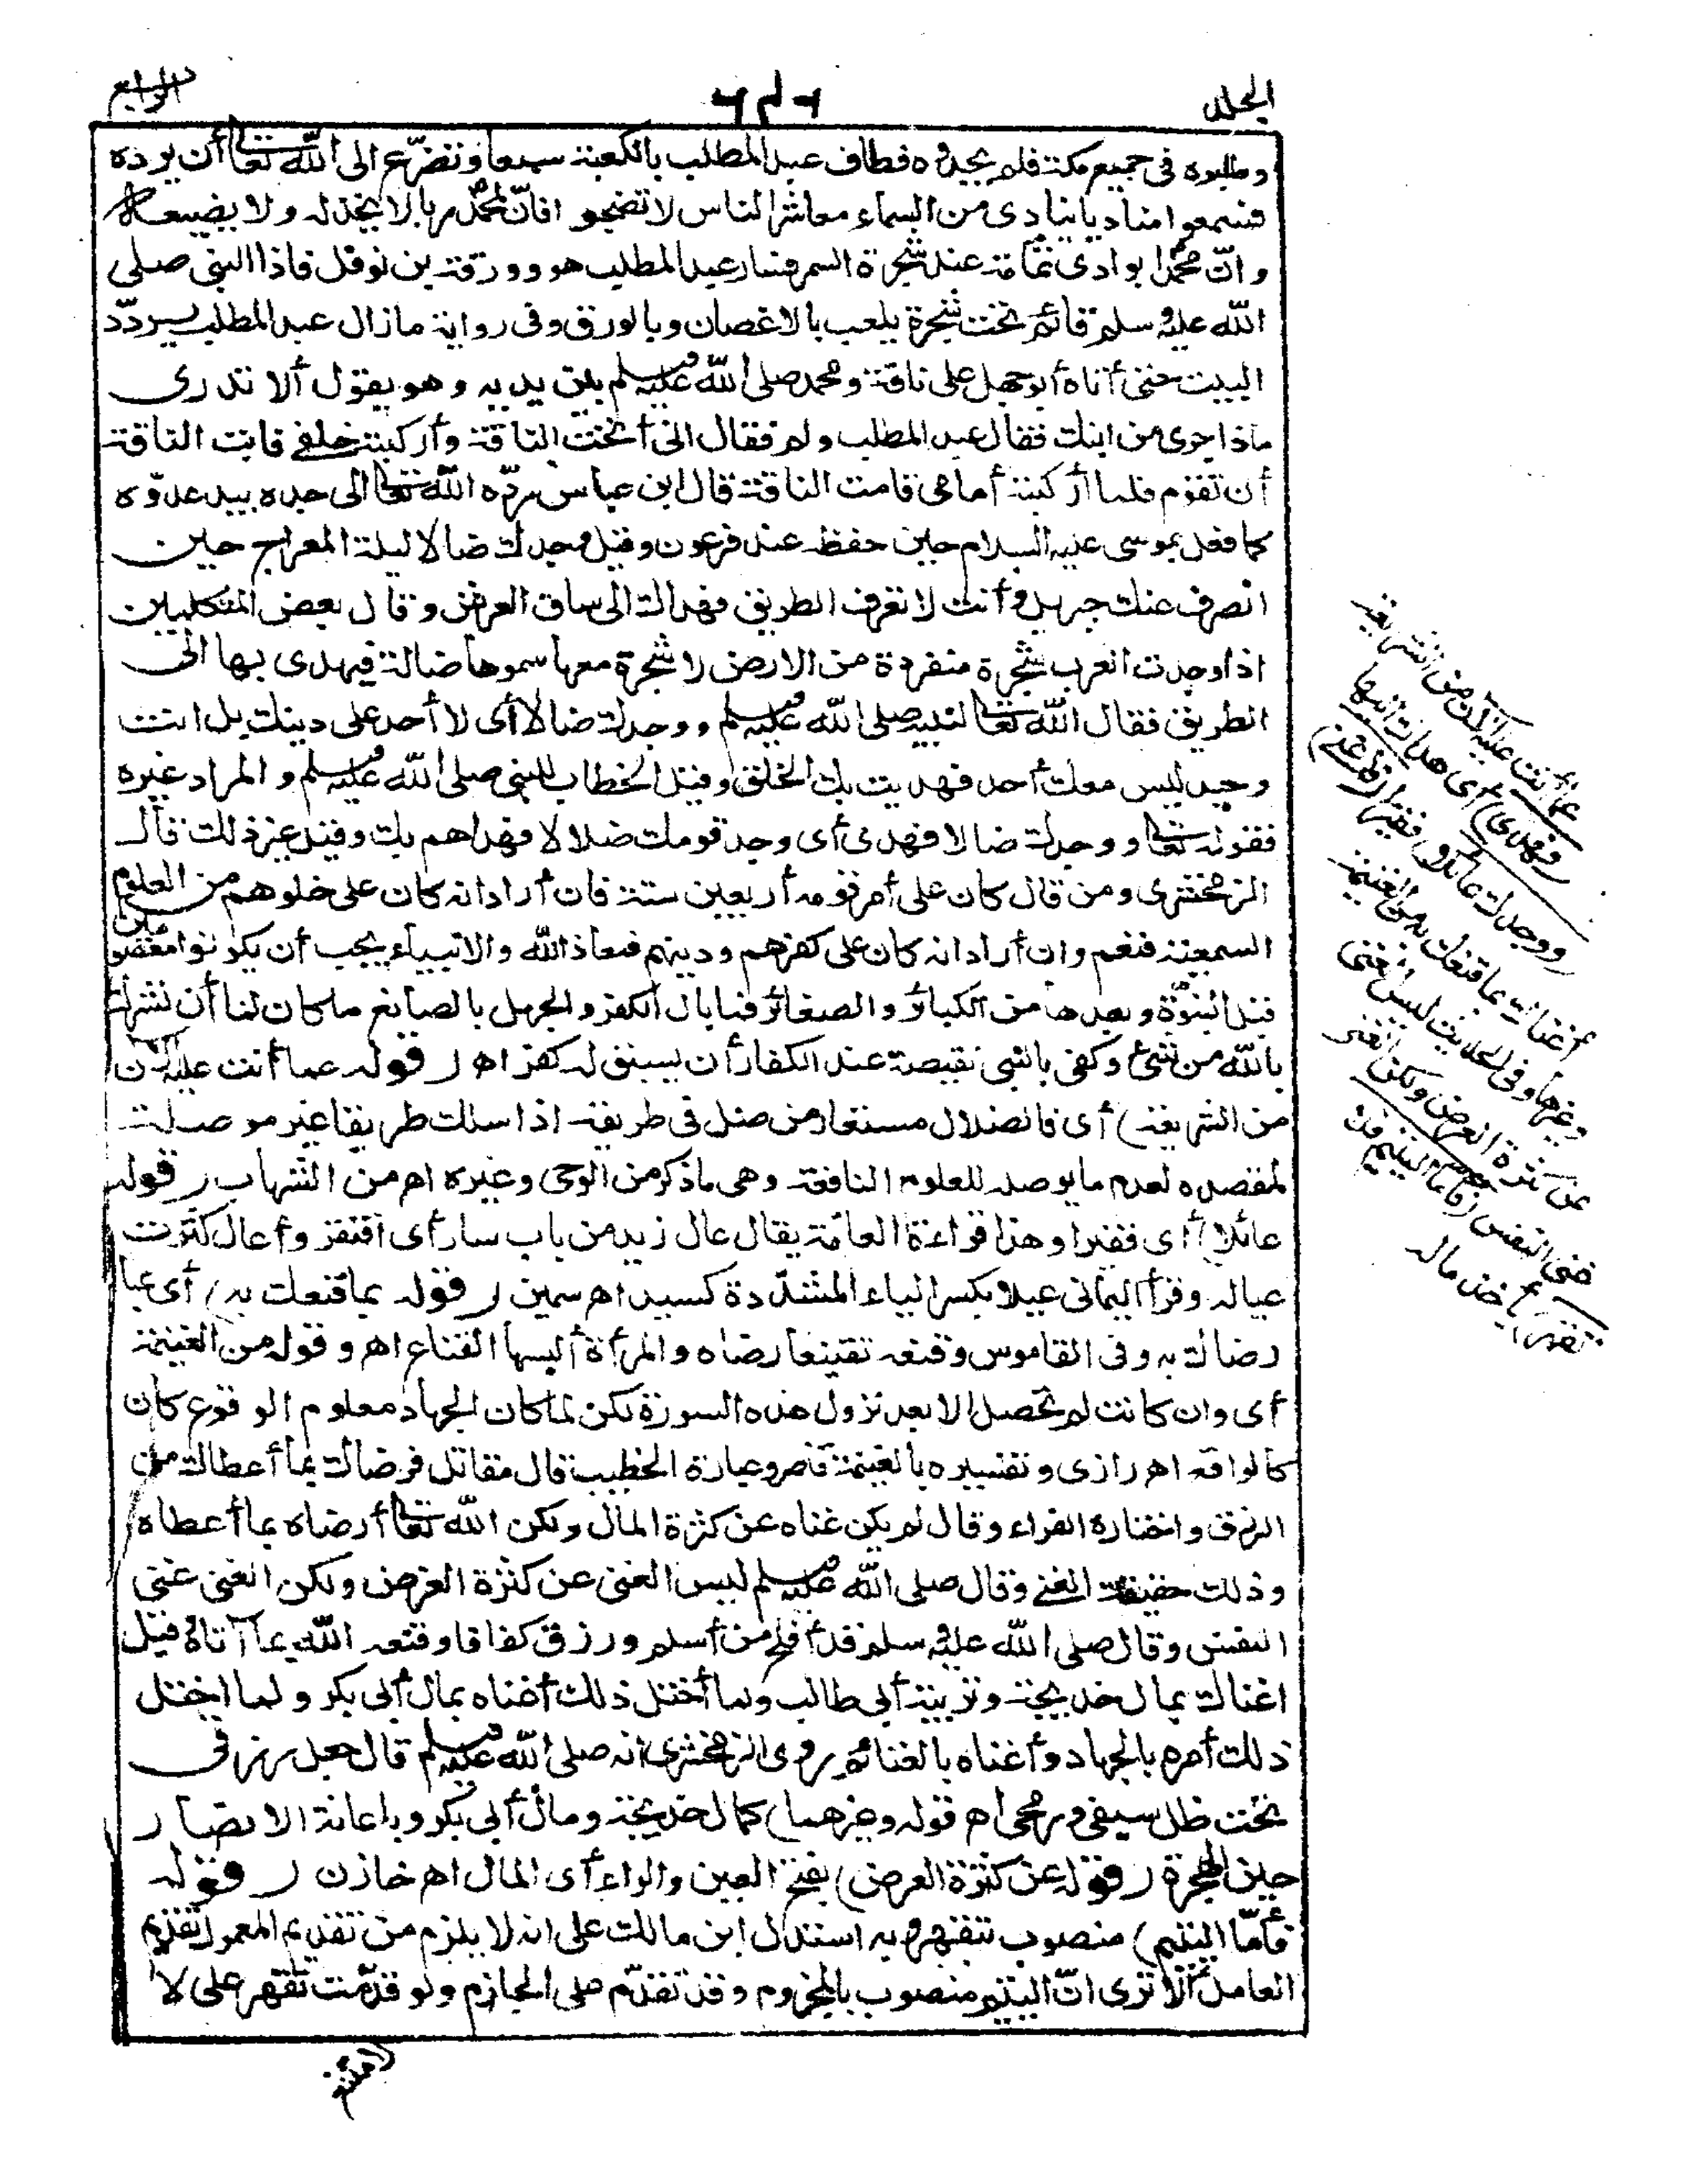 الجلد
الرابع
وطلبوه فى جميع مكة فلم يجدوه فطاف عبد المطلب بالكعبة سبعا وتضرّع الى الله تعالى أن يرده
فسمعوا مناديا ينادى من السماء معاشر الناس لا تضجوا فانّ لمحمّد ربا لا يخذله ولا يضيعه
وانّ محمّدا بوادى تهامة عند شجرة السمر فسار عبد المطلب هو وورقة بن نوفل فاذا النبى صلى
الله عليه وسلم قائم تحت شجرة يلعب بالاغصان وبالورق وفى رواية مازال عبد المطلب يردّد
البيت حتى أتاه أبو جهل على ناقة ومحمد صلى الله عليه وسلم بين يديه وهو يقول ألا تدرى
ماذا جرى من ابنك فقال عبد المطلب ولم فقال انى أنخت الناقة وأركبته خلفى فابت الناقة
أن تقوم فلما أركبته أمامى قامت الناقة قال ابن عباس ردّه الله تعالى الى جده بيد عدوّه
كما فعل بموسى عليه السلام حين حفظه عند فرعون وقيل وجدك ضالا ليلة المعراج حين
انصرف عنك جبريل وأنت لا تعرف الطريق فهداك الى ساق العرش وقال بعض المتكلمين
اذا وجدت العرب شجرة منفردة من الارض لا شجرة معها سموها ضالة فيهدى بها الى
الطريق فقال الله تعالى لنبيه صلى الله عليه وسلم ووجدك ضالا أى لا أحد على دينك بل انت
وحيد ليس معك أحد فهديت بك الخلق وقيل الخطاب للنبى صلى الله عليه وسلم والمراد غيره
فقوله تعالى ووجدك ضالا فهدى أى وجد قومك ضلالا فهداهم بك وقيل غير ذلك قال
الزمخشرى ومن قال كان على أمر قومه أربعين سنة فان أراد انه كان على خلوهم من العلوم
السمعية فنعم وان أراد انه كان على كفرهم ودينهم فمعاذ الله والانبياء يجب أن يكونوا معصومين
قبل النبوّة وبعدها من الكبائر والصغائر فما بال الكفر والجهل بالصانع ما كان لنا أن نشرك
بالله من شئ وكفى بالنبى نقيصة عند الكفار أن يسبق له كفر اه (قوله عما أنت عليه الآن
من الشريعة) أى فالضلال مستعار من ضل فى طريقه اذا سلك طريقا غير موصلة
لمقصده لعدم ما يوصله للعلوم النافعة وهى ماذكر من الوحى وغيره اه من الشهاب (قوله
عائلا) أى فقيرا وهذا قراءة العامّة يقال عال زيد من باب سار أى افتقر وأعال كثرت
عياله وقرأ اليمانى عيلا بكسر الياء المشدّدة كسيد اه سمين (قوله بما قنعك به) أى بما
رضاك به وفى القاموس وقنعه تقنيعا رضاه والمرأة ألبسها القناع اه وقوله من الغنيمة
أى وان كانت لم تحصل الا بعد نزول هذه السورة لكن لما كان الجهاد معلوم الوقوع كان
كالواقع اه رازى وتفسيره بالغنيمة قاصر وعبارة الخطيب قال مقاتل فرضاك بما أعطاك من
الرزق واختاره الفراء وقال لم يكن غناه عن كثرة المال ولكن الله تعالى أرضاه بما أعطاه
وذلك حقيقة الغنى وقال صلى الله عليه وسلم ليس الغنى عن كثرة العرض ولكن الغنى غنى
النفس وقال صلى الله عليه وسلم قد أفلح من أسلم ورزق كفافا وقنعه الله بما آتاه وقيل
اغناك بمال خديجة وتربية أبى طالب ولما اختل ذلك أغناه بمال أبى بكر ولما اختل
ذلك أمره بالجهاد وأغناه بالغنائم روى الزمخشرى انه صلى الله عليه وسلم قال جعل رزقى
تحت ظل سيفى ورمحى اه قوله وغيرها) كمال خديجة ومال أبى بكر وباعانة الانصار
حين الهجرة (قوله عن كثرة العرض) بفتح العين والراء أى المال اه خازن (قوله
فأمّا اليتيم) منصوب بتقهر وبه استدل ابن مالك على انه لا يلزم من تقديم المعمول تقديم
العامل ألا ترى انّ اليتيم منصوب بالمجزوم وقد تقدّم على الجازم ولو قدّمت تقهر على لا
عما أنت عليه الآن من الشريعة
(فهدى) أى هداك اليها
(ووجدك عائلا) فقيرا (فأغنى)
أغناك بما قنعك به من الغنيمة
وغيرها وفى الحديث ليس الغنى
عن كثرة العرض ولكن الغنى
غنى النفس (فأما اليتيم فلا
تقهر) بأخذ ماله